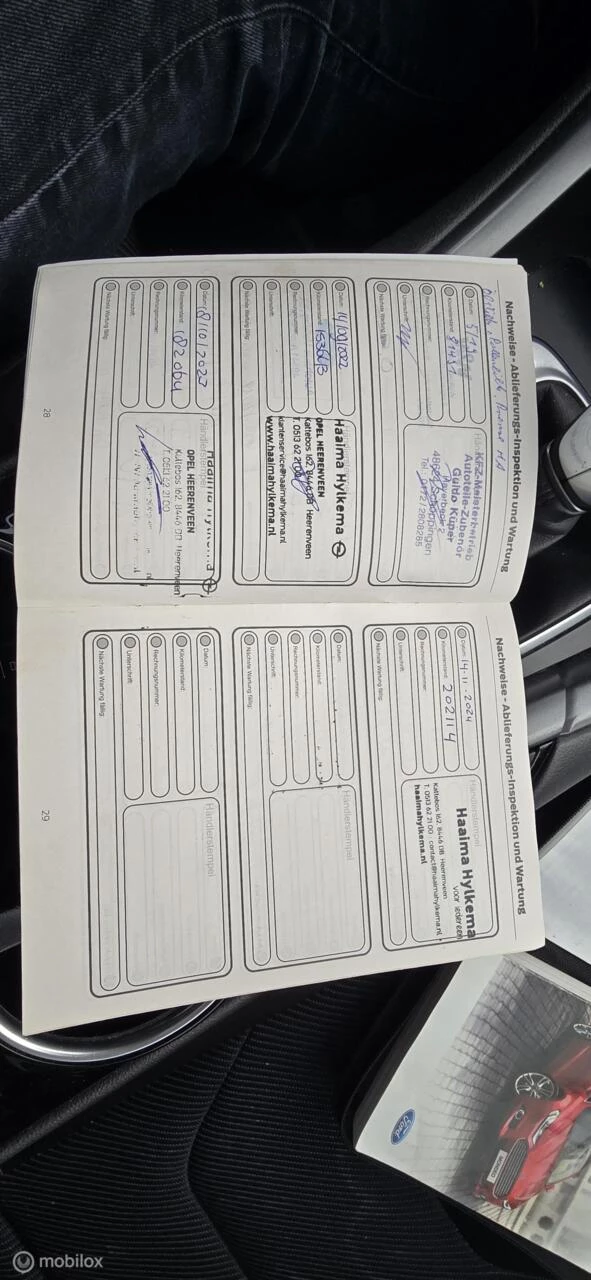 Nachweise - Ablieferungs-Inspektion und Wartung
Datum:
Kilometerstand:
Rechnungsnummer:
Unterschrift:
Nächste Wartung fällig:
KFZ-Meisterbetrieb
Autoteile-Zubehör
Guido Küper
Datum: 14/09/2022
Kilometerstand: 153603
Rechnungsnummer:
Unterschrift:
Nächste Wartung fällig:
Haaima Hylkema
OPEL HEERENVEEN
Kattebos 162, 8446 DB Heerenveen
T. 0513 62 21 00
klantenservice@haaimahylkema.nl
www.haaimahylkema.nl
Datum: 18/10/2023
Kilometerstand: 182064
Rechnungsnummer:
Unterschrift:
Nächste Wartung fällig:
Händlerstempel
Haaima Hylkema
OPEL HEERENVEEN
Kattebos 162, 8446 DB Heerenveen
T. 0513 62 21 00
28
Nachweise - Ablieferungs-Inspektion und Wartung
Datum: 14-11-2024
Kilometerstand: 202114
Rechnungsnummer:
Unterschrift:
Nächste Wartung fällig:
Händlerstempel
Haaima Hylkema
voor iedereen
Kattebos 162, 8446 DB Heerenveen
T. 0513 62 21 00 contact@haaimahylkema.nl
haaimahylkema.nl
Datum:
Kilometerstand:
Rechnungsnummer:
Unterschrift:
Nächste Wartung fällig:
Händlerstempel
Datum:
Kilometerstand:
Rechnungsnummer:
Unterschrift:
Nächste Wartung fällig:
Händlerstempel
29
Ford
MONDEO
mobilox